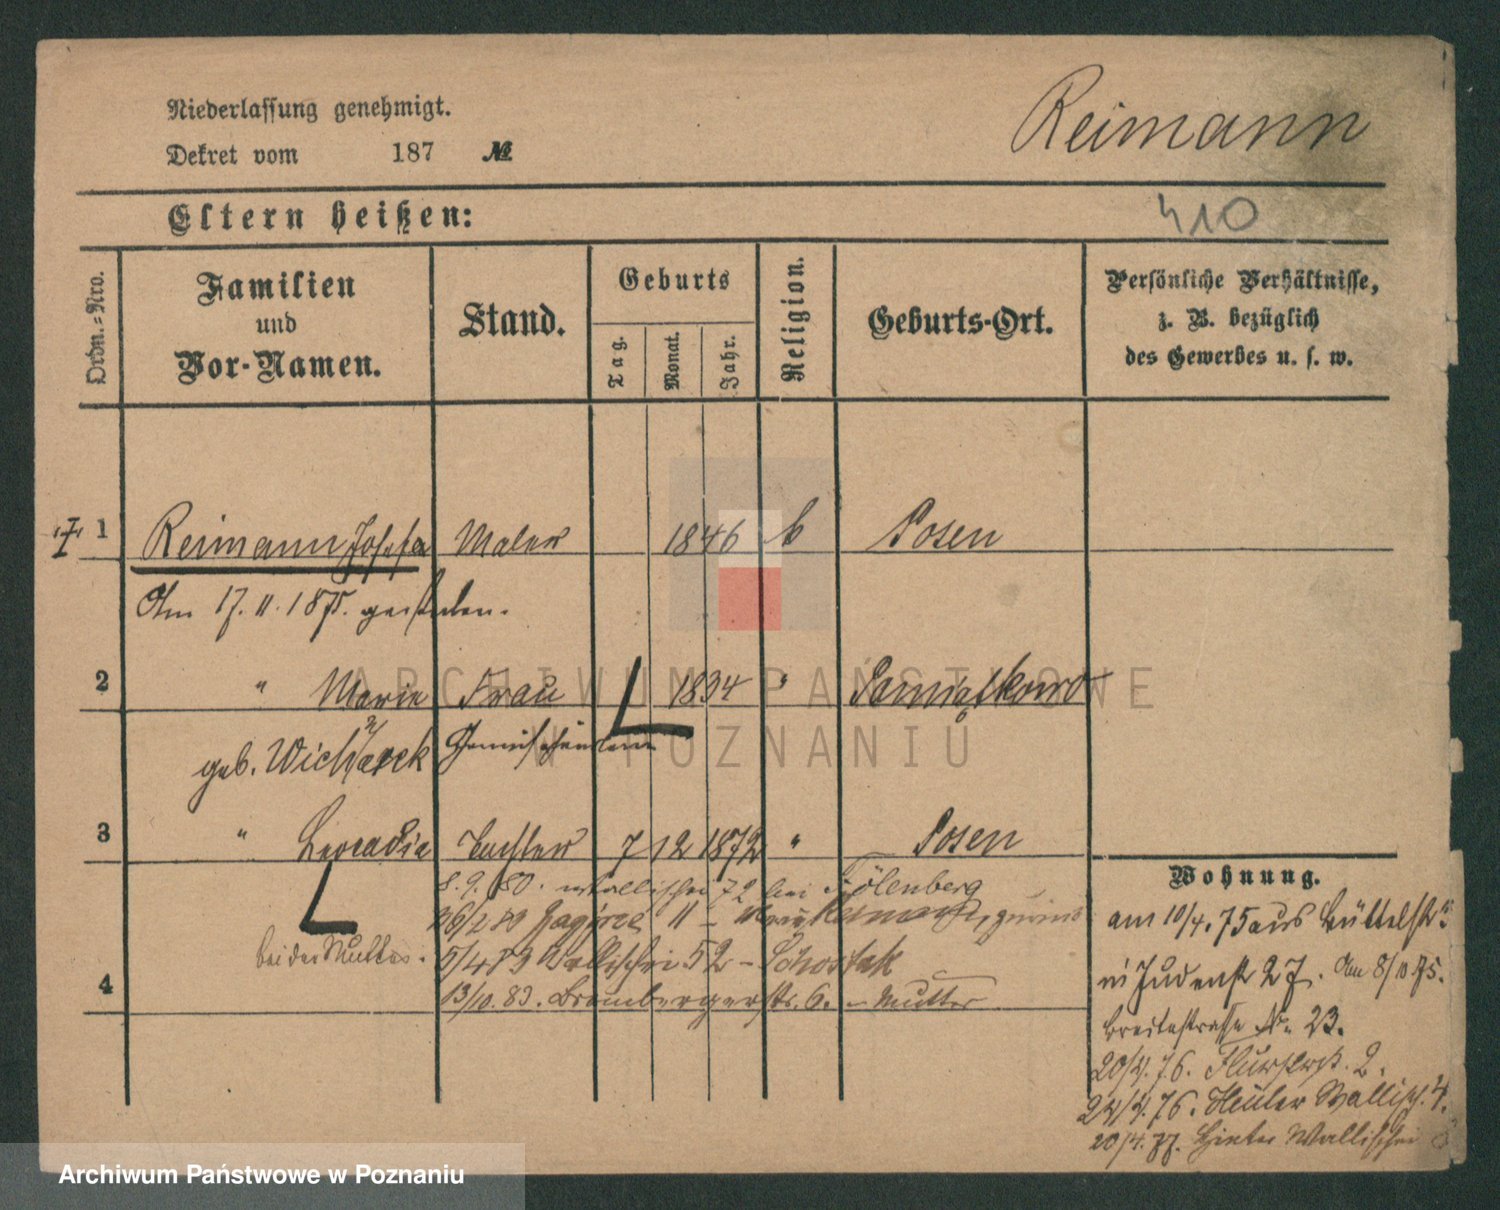 Niederlassung genehmigt.
Reimann
Dekret vom 187 №
410
Eltern heißen:
Ordn.=Nro.
Familien
und
Vor-Namen.
Stand.
Geburts
Tag.
Monat.
Jahr.
Religion.
Geburts-Ort.
Persönliche Verhältnisse,
z. B. bezüglich
des Gewerbes u. s. w.
1 Reimann Josefa Maler 1846 k Posen
Am 17. 11. 1875. gestorben.
2 " Marie Frau 1834 " Pamiątkowo
geb.
3 " Leocadia Tochter 7 12 1872 " Posen
Wohnung.
8. 9. 80. Wallischei 72 bei
26/2 80 Zagórze 11 -
bei der Mutter.
5/4 83 Wallischei 52 - Schostak
4
13/10. 83. Brombergerstr. 6. - Mutter
am 10/4. 75 aus Büttelstr
in Judenstr 27. Am 8/10 75.
Breitestrasse No. 23.
20/4. 76. 2.
24/4. 76. Hinter Wallisch. 4.
20/4. 77. Hinter Wallischei
ARCHIWUM PAŃSTWOWE
W POZNANIU
Archiwum Państwowe w Poznaniu